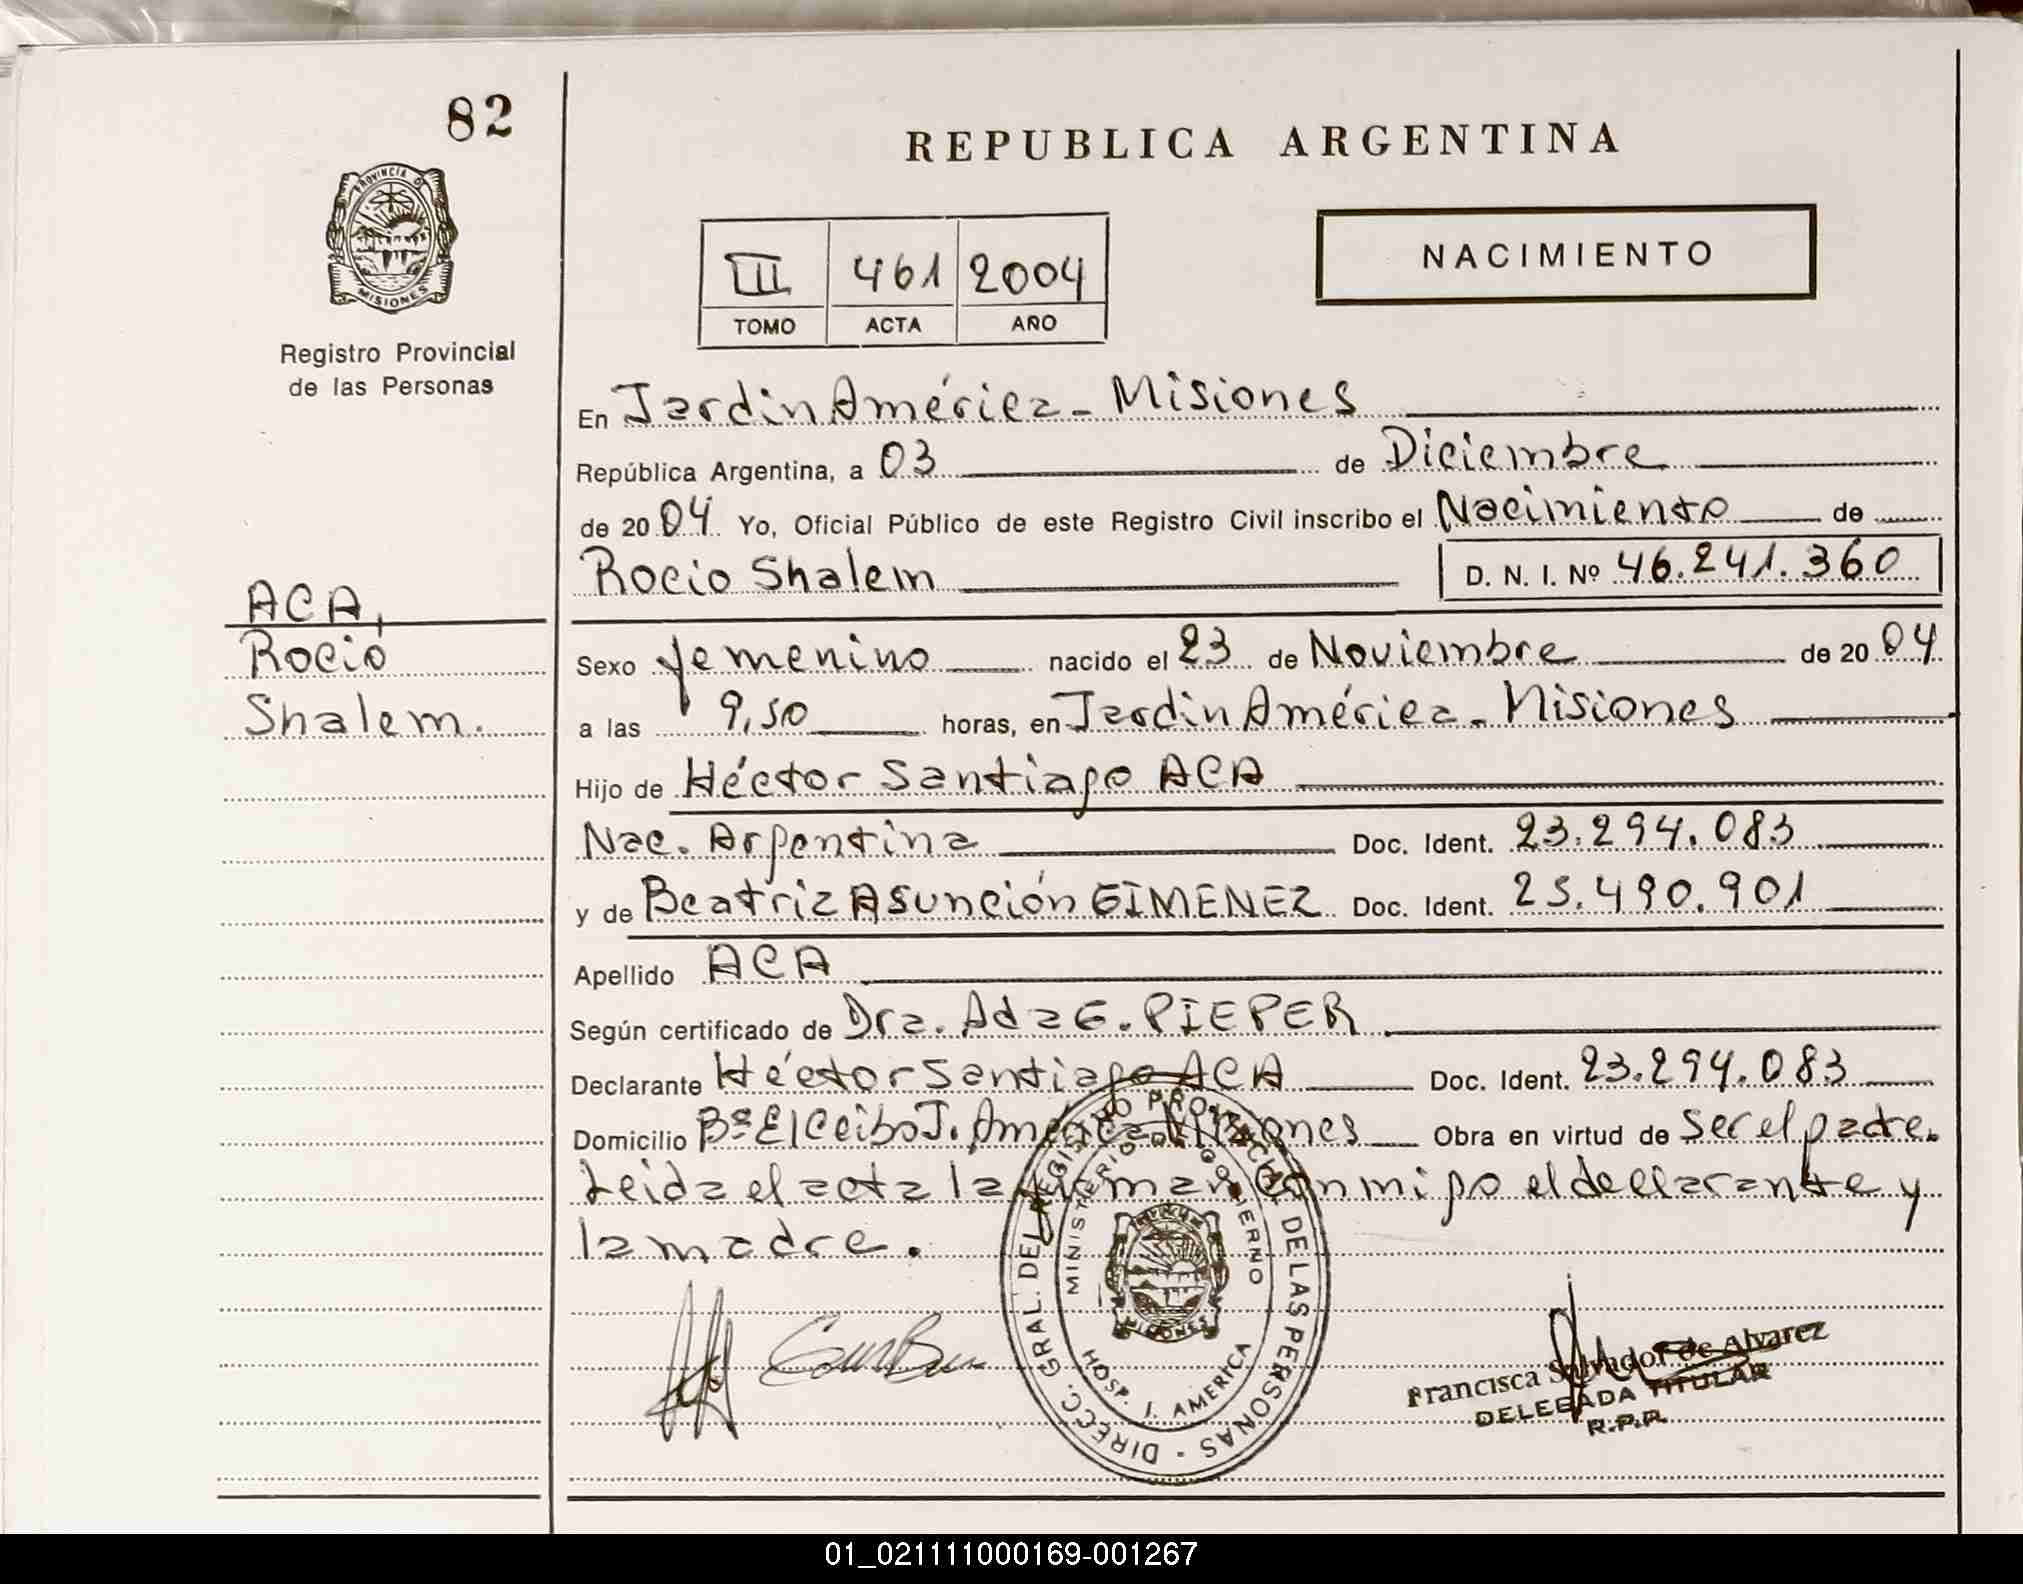 82
REPUBLICA ARGENTINA
PROVINCIA DE
MISIONES
Registro Provincial
de las Personas
III 461 2004
TOMO ACTA AÑO
NACIMIENTO
En Jardin América - Misiones
República Argentina, a 03 de Diciembre
de 20 04 Yo, Oficial Público de este Registro Civil inscribo el Nacimiento de
Rocio Shalem D. N. I. Nº 46.241.360
ACA,
Rocio
Shalem.
Sexo femenino nacido el 23 de Noviembre de 20 04
a las 9,50 horas, en Jardin América - Misiones
Hijo de Héctor Santiago ACA
Nac. Argentina Doc. Ident. 23.294.083
y de Beatriz Asunción GIMENEZ Doc. Ident. 25.490.901
Apellido ACA
Según certificado de Dra. Ada E. PIEPER
Declarante Héctor Santiago ACA Doc. Ident. 23.294.083
Domicilio Bº El Ceibo J. América Misiones Obra en virtud de ser el padre.
Leida el acta la firman conmigo el declarante y
la madre.
DIRECC. GRAL. DEL REGISTRO PROVINCIAL DE LAS PERSONAS -
MINISTERIO DE GOBIERNO
MISIONES
HOSP. J. AMERICA
Francisca Salvador de Alvarez
DELEGADA TITULAR
R.P.P.
01_021111000169-001267